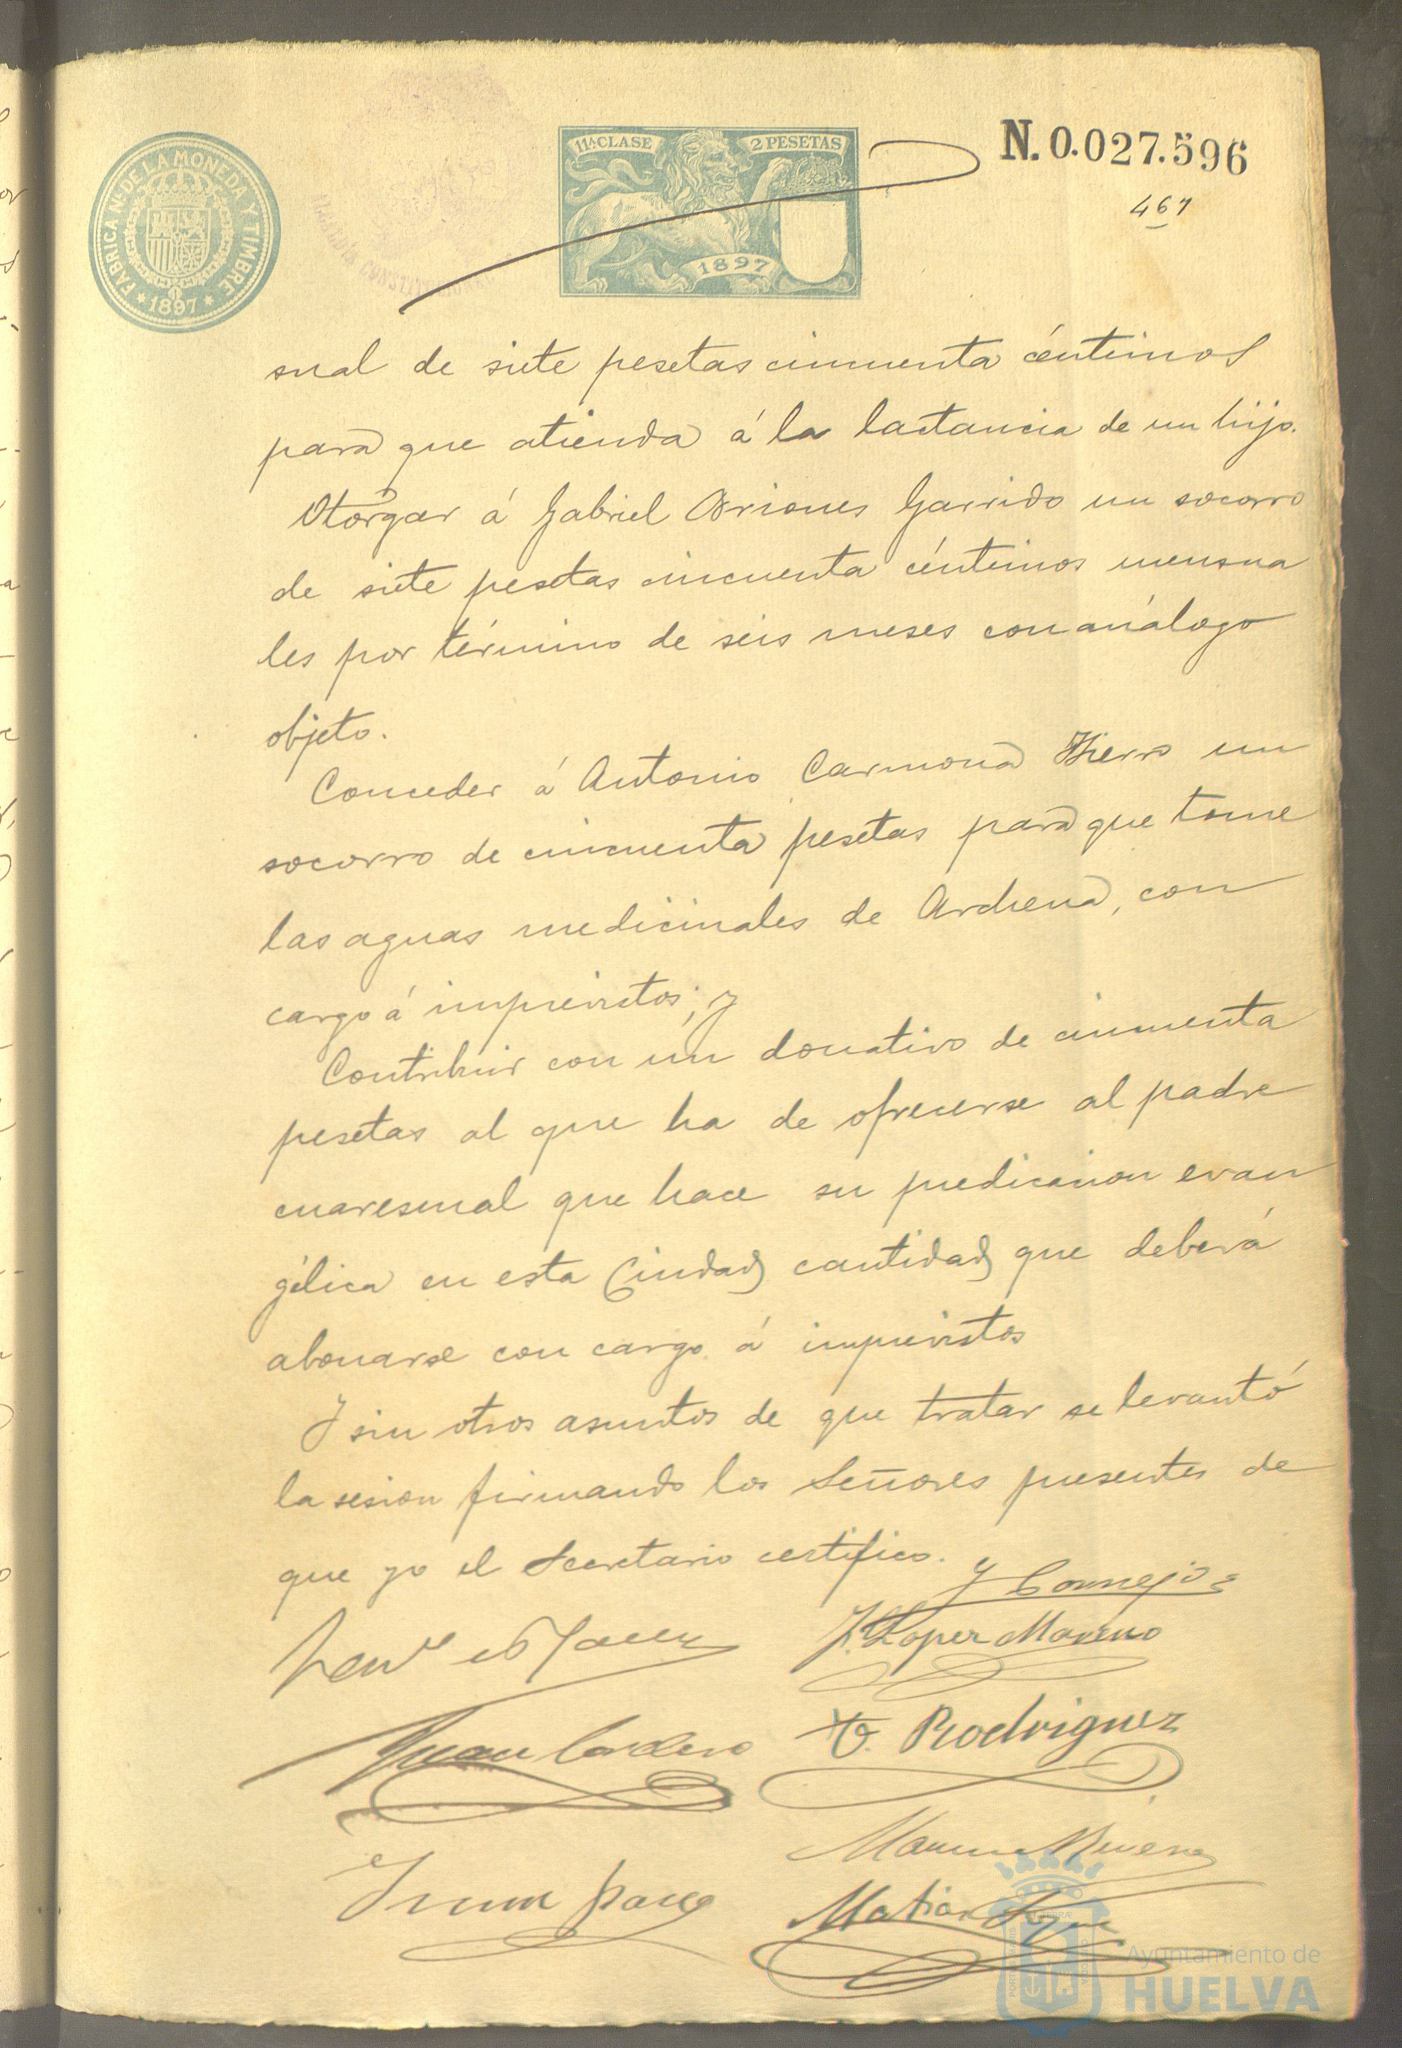 FÁBRICA Nal. DE LA MONEDA Y TIMBRE
* 1897 *
11ª CLASE
2 PESETAS
1897
N. 0.027.596
467
sual de siete pesetas cincuenta céntimos
para que atienda á la lactancia de un hijo.
Otorgar á Gabriel Briones Garrido un socorro
de siete pesetas cincuenta céntimos mensua
les por término de seis meses con análogo
objeto.
Conceder á Antonio Carmona Hierro un
socorro de cincuenta pesetas para que tome
las aguas medicinales de Archena, con
cargo á imprevistos; y
Contribuir con un donativo de cincuenta
pesetas al que ha de ofrecerse al padre
cuaresmal que hace su predicacion evan
gélica en esta Ciudad cantidad que deberá
abonarse con cargo á imprevistos
Y sin otros asuntos de que tratar se levantó
la sesion firmando los Señores presentes de
que yo el Secretario certifico.
Y Cornejo
J. Lopez Moreno
Juan Cordero
Rodriguez
Matias
Ayuntamiento de
HUELVA